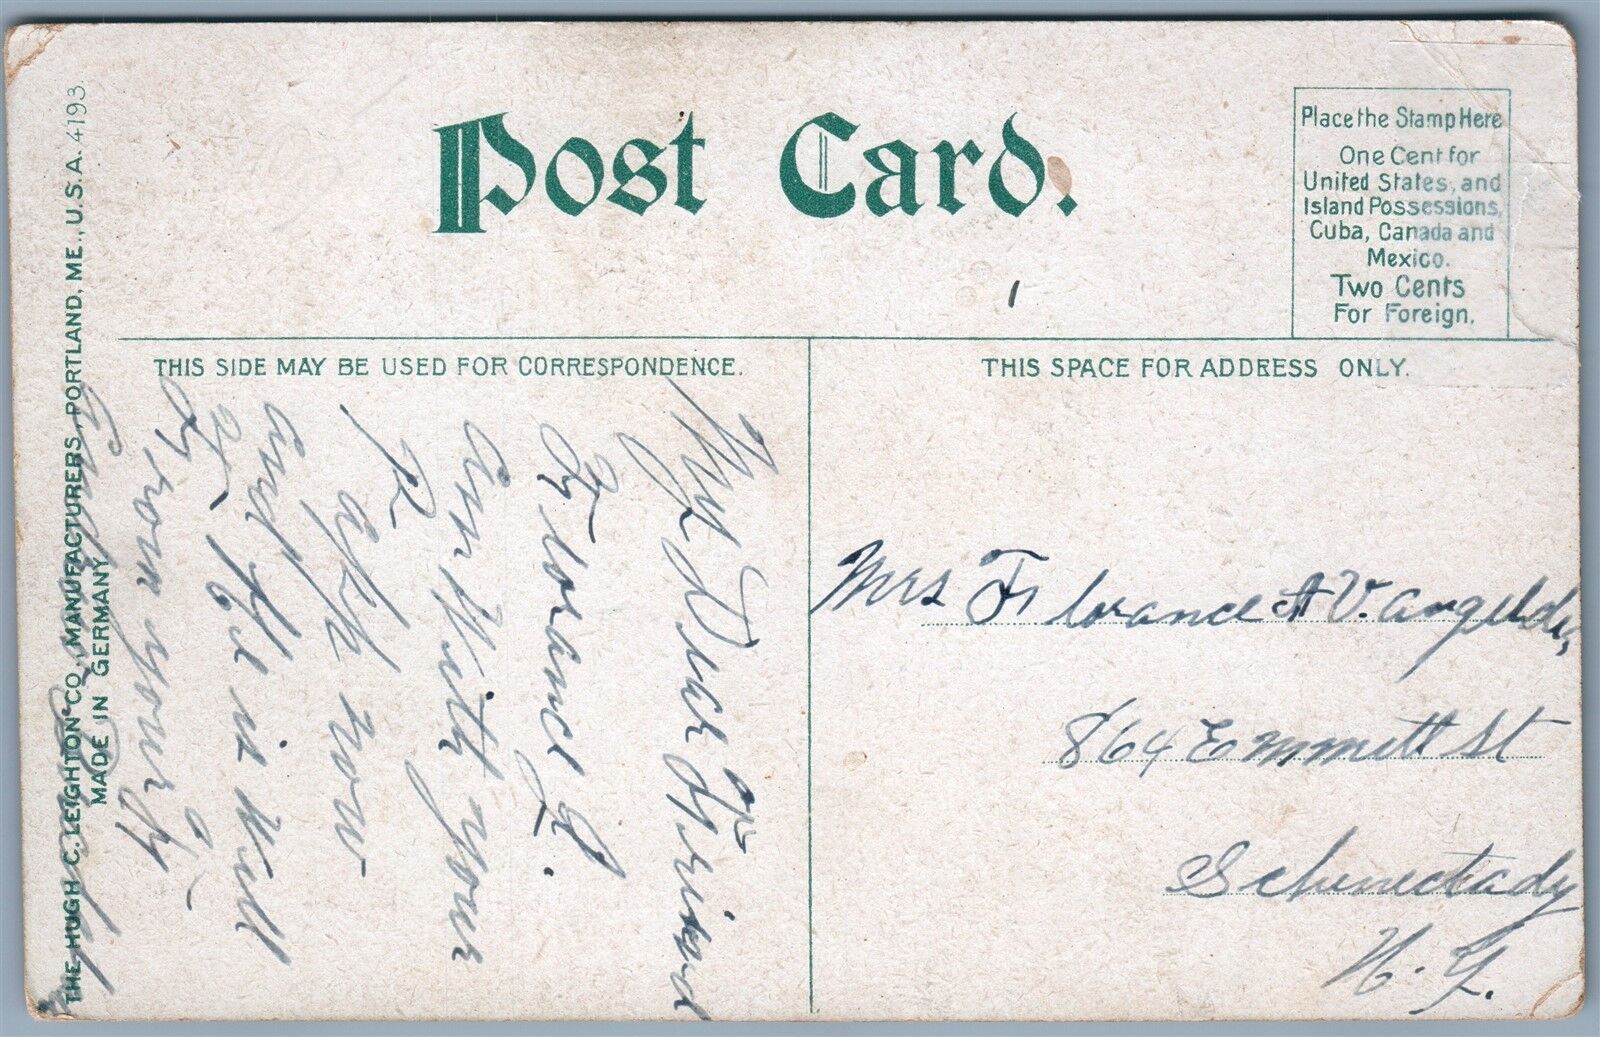 Post Card.
Place the Stamp Here
One Cent for
United States, and
Island Possessions,
Cuba, Canada and
Mexico.
Two Cents
For Foreign.
THIS SIDE MAY BE USED FOR CORRESPONDENCE.
THIS SPACE FOR ADDRESS ONLY.
THE HUGH C. LEIGHTON CO., MANUFACTURERS, PORTLAND, ME., U.S.A. 4193
MADE IN GERMANY
My Dear Friend
Florance
am With your
now
and He is Will
From your
Mrs Florance A V.
864 Emmett St
Schenectady
N. Y.